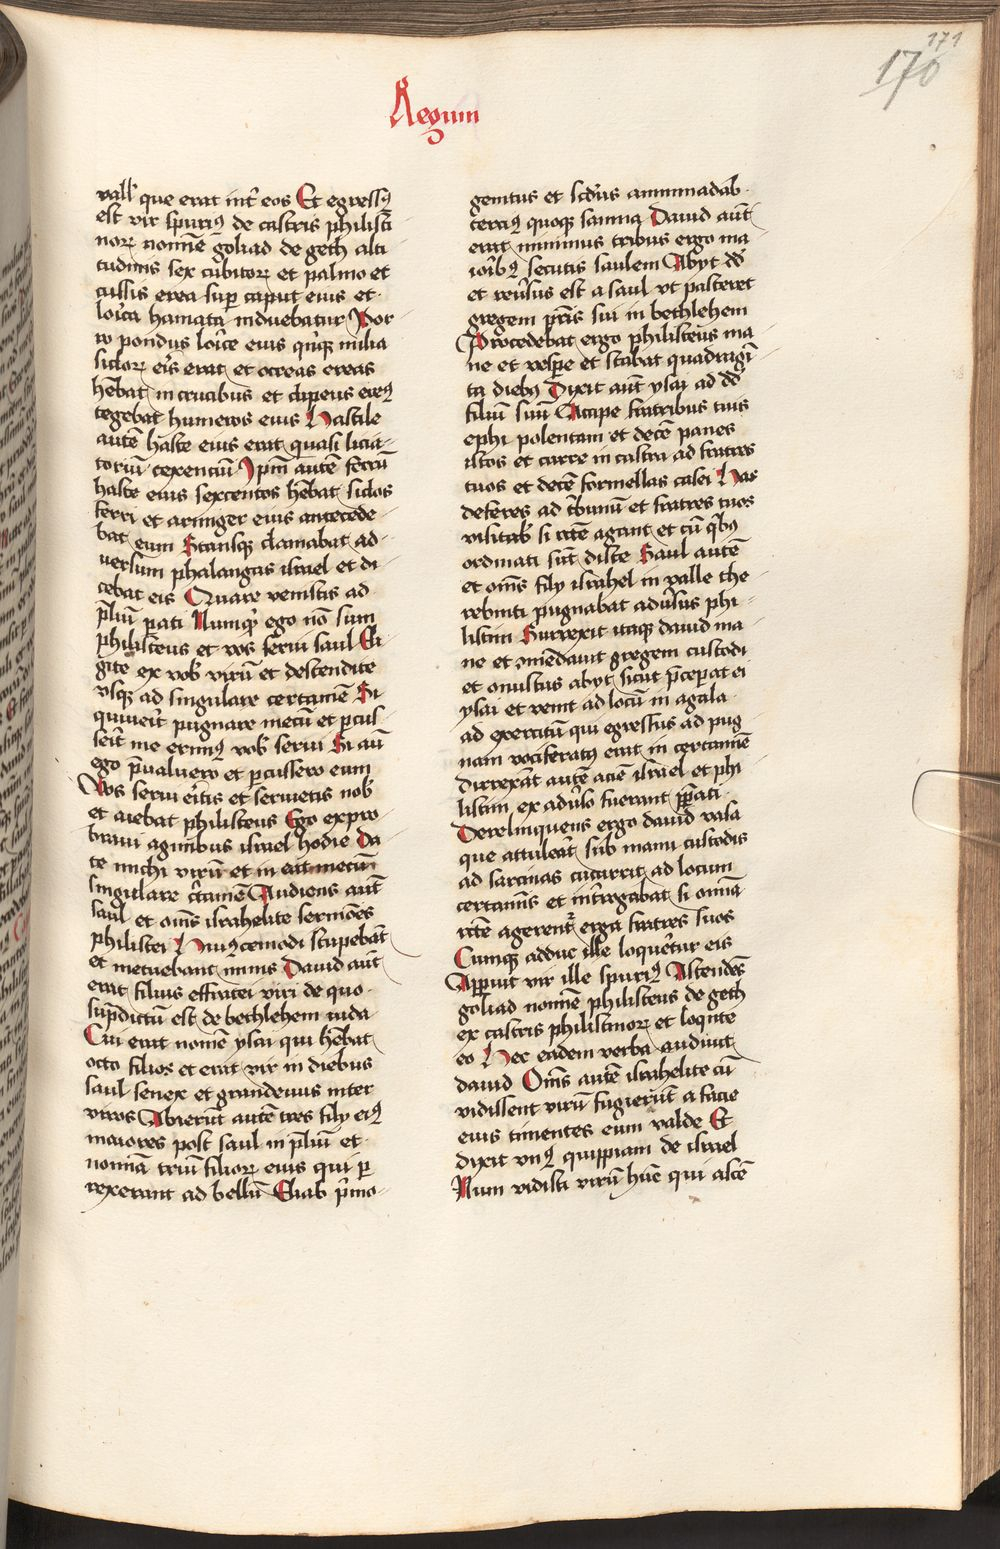 171
170
Regum
vall' que erat int̄ eos Et egressꝰ
est vir spuriꝰ de castris philisti
norꝫ nomīe goliad de geth alti
tudinis sex cubitorꝫ et palmo et
cassis erea sup̱ caput eius et
lorica hamata induebatur Por
ro pondus lorice eius qͥnqꝫ milia
siclorꝫ eīs erat et ocreas ereas
hēbat in cruribus et clipeus ereꝰ
tegebat humeros eius Hastile
autē haste eius erat quasi licia
toriū texenciū Ipm̄ autē ferrū
haste eius sexcentos hēbat siclos
ferri et armiger eius antecede
bat eum Stansqꝫ clamabat ad
versum phalangas israel et di
cebat eis Quare venistis ad
p̄liū pati Numqͥd ego nō sum
philisteus et vos servi saul Eli
gite ex vob̄ virū et descendite
vsqꝫ ad singulare certamē Si
quiuerit pugnare mecū et ꝑcus
serit me erimꝰ vob̄ serui Si aūt
ego p̄ualuero et ꝑcussero eum
Vos serui eritis et seruietis nob̄
et aiebat philisteus Ego expro
braui agminibus israel hodie Da
te michi virū et in eat mecū
singulare c̄tamē Audiens aūt
saul et om̄s israhelite sermōes
philistei Huiꝰcemodi stupebāt
et metuebant nimis Dauid aūt
erat filius effratei viri de quo
sup̄dictū est de bethlehem iuda
Cui erat nomē ysai qui hēbat
octo filios et erat vir in diebus
saul senex et grandeuus inter
viros Abierūt autē tres filij eiꝰ
maiores post saul in p̄liū et
nomīa triū filiorꝫ eius qui ꝑ
rexerant ad bellū Eliab p̄mo
genitus et scd̄us aminadab
terciꝰ quoqꝫ samma Dauid aūt
erat minimus tribus ergo ma
ioribꝰ secutis saulem Abyt dd̄
et reuersus est a saul vt pasceret
gregem pr̄is sui in bethlehem
Procedebat ergo philisteus ma
ne et vesp̱e et stabat quadragī
ta diebꝰ Dixit aūt ysai ad dd̄
filiū suū Accipe fratribus tuis
ephi polentam et decē panes
istos et curre in castra ad fratres
tuos et decē formellas casei Has
deferes ad t̄bunū et fratres tuos
visitab̄ si rc̄te agant et cū qͥbꝰ
ordinati sūt disce Saul autē
et om̄s filij israhel in valle the
rebinti pugnabāt adūsus phi
listiim Surrexit itaqꝫ dauid ma
ne et ꝯmēdauit gregem custodi
et onustus abyt sicut p̄ceperat ei
ysai et venit ad locū in agala
ad exercitū qui egressus ad pug
nam vociferatꝰ erat in certamīe
Direxerāt autē aciē israel et phi
listiim ex adūso fuerant p̄parati
Derelinquens ergo dauid vasa
que attulerat sub manu custodis
ad sarcinas cucurrit ad locum
certaminis et int̄rogabat si omīa
rc̄te agerentᷣ erga fratres suos
Cumqꝫ adduc ille loqueretur eis
Apparuit vir ille spuriꝰ Ascendēs
goliad nomīe philisteus de geth
ex castris philistinorꝫ et loqn̄te
eo Hec eadem verba audiuit
dauid Om̄s autē israhelite cū
vidissent virū fugierūt a facie
eius timentes eum valde Et
dixit vnꝰ quippiam de israel
Num vidisti virū hūc qui ascē